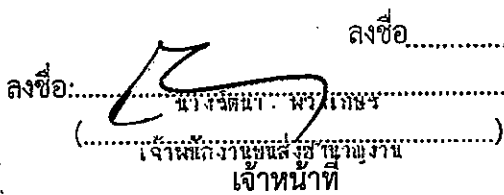 ลงชื่อ
ลงชื่อ:
นางรัตนา
(
)
เจ้าพนักงานขนส่งชำนาญงาน
เจ้าหน้าที่